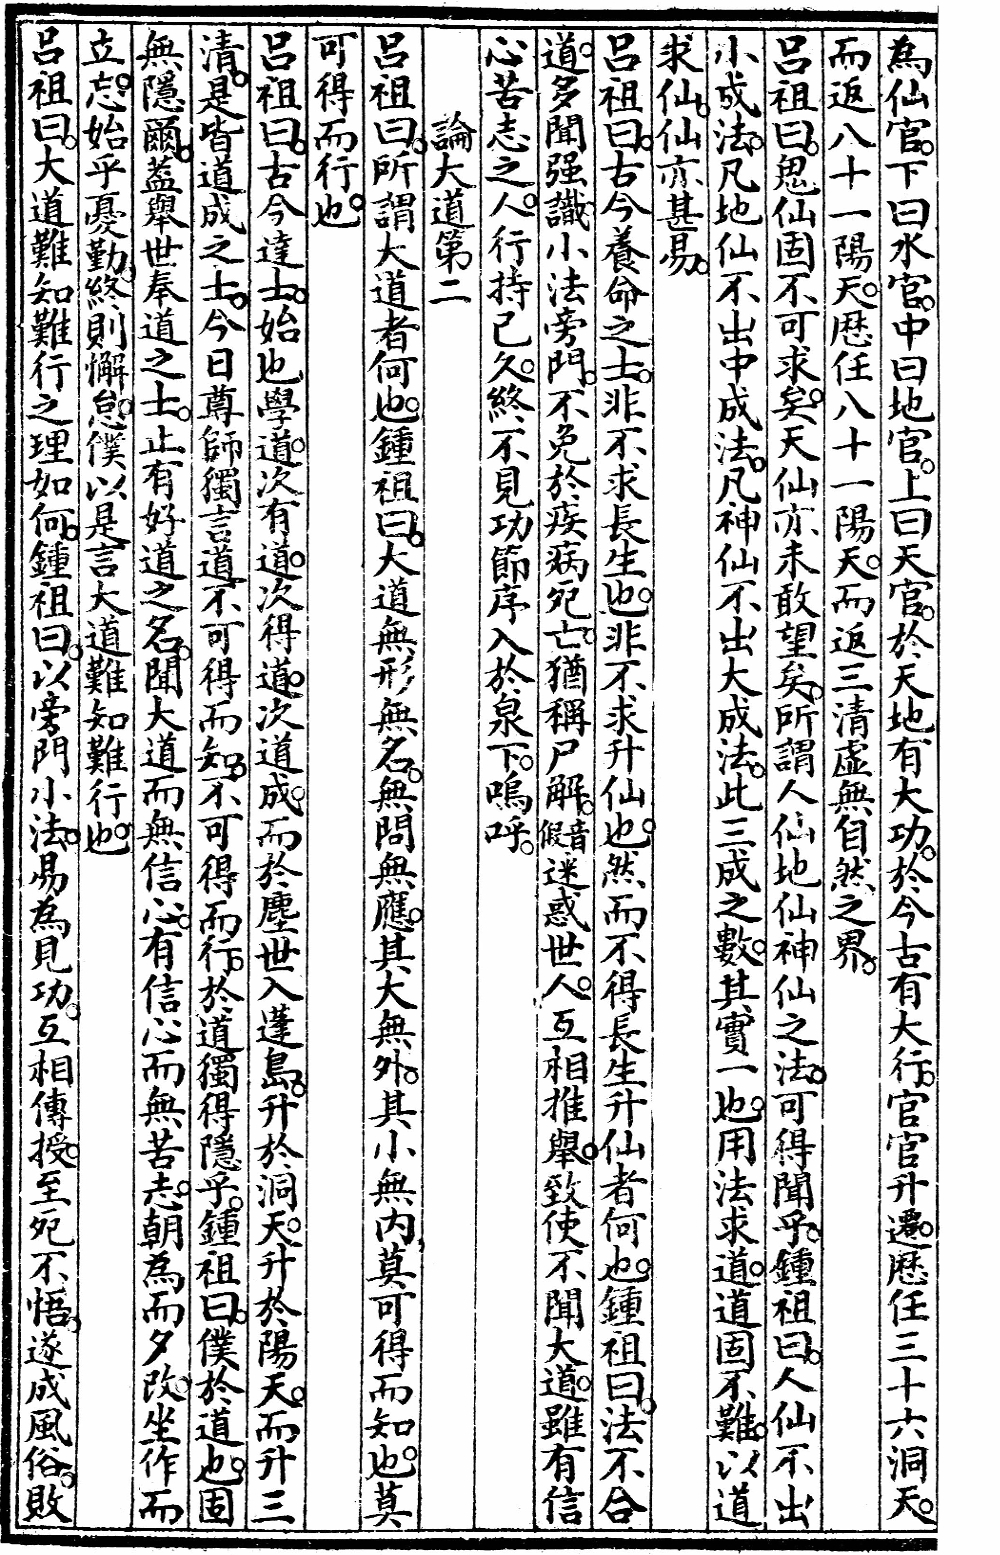 為仙官。下曰水官。中曰地官。上曰天官。於天地有大功。於今古有大行。官官升遷。歷任三十六洞天。
而返八十一陽天。歷任八十一陽天。而返三清虛無自然之界。
呂祖曰。鬼仙固不可求矣。天仙亦未敢望矣。所謂人仙地仙神仙之法。可得聞乎。鍾祖曰。人仙不出
小成法。凡地仙不出中成法。凡神仙不出大成法。此三成之數。其實一也。用法求道。道固不難。以道
求仙。仙亦甚易。
呂祖曰。古今養命之士。非不求長生也。非不求升仙也。然而不得長生升仙者何也。鍾祖曰。法不合
道。多聞强識。小法旁門。不免於疾病死亡。猶稱尸解。音假迷惑世人。互相推舉。致使不聞大道。雖有信
心苦志之人。行持已久。終不見功。節序入於泉下。嗚呼。
論大道第二
呂祖曰。所謂大道者何也。鍾祖曰。大道無形無名。無問無應。其大無外。其小無內。莫可得而知也。莫
可得而行也。
呂祖曰。古今達士。始也學道。次有道。次得道。次道成。而於塵世入蓬島。升於洞天。升於陽天。而升三
清。是皆道成之士。今日尊師獨言道不可得而知。不可得而行。於道獨得隱乎。鍾祖曰。僕於道也。固
無隱爾。蓋舉世奉道之士。止有好道之名。聞大道而無信心。有信心而無苦志。朝為而夕改。坐作而
立忘。始乎憂勤。終則懈怠。僕以是言大道難知難行也。
呂祖曰。大道難知難行之理如何。鍾祖曰。以旁門小法。易為見功。互相傳授。至死不悟。遂成風俗。敗